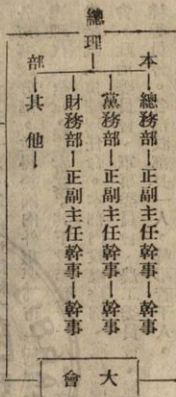 總理
本部
總務部—正副主任幹事—幹事
黨務部—正副主任幹事—幹事
財務部—正副主任幹事—幹事
其他—
大會